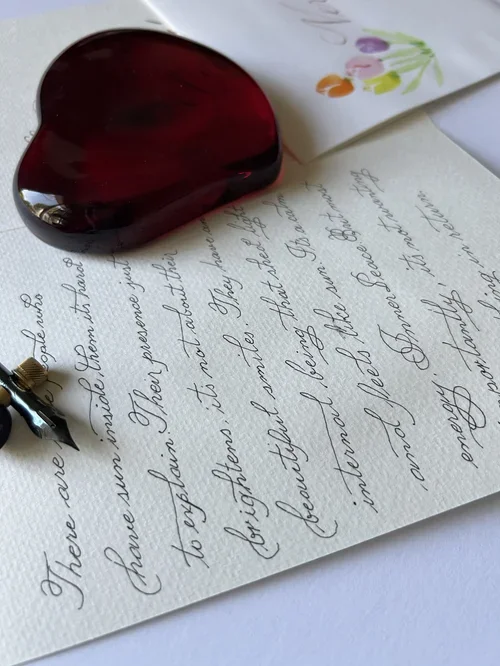 There are people who
have sun inside them its hard
to explain. Their presence just
brightens. it's not about their
beautiful smiles. They have an
internal being that shed light
and feels like sun. It's a calm
Inner Peace that
energy, its not wanting
in return